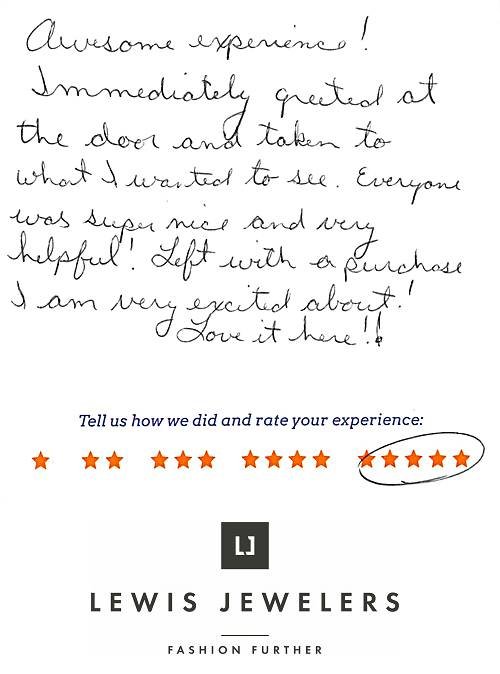 Awesome experience!
Immediately greeted at
the door and taken to
what I wanted to see. Everyone
was super nice and very
helpful! Left with a purchase
I am very excited about!
Love it here!!
Tell us how we did and rate your experience:
LEWIS JEWELERS
FASHION FURTHER